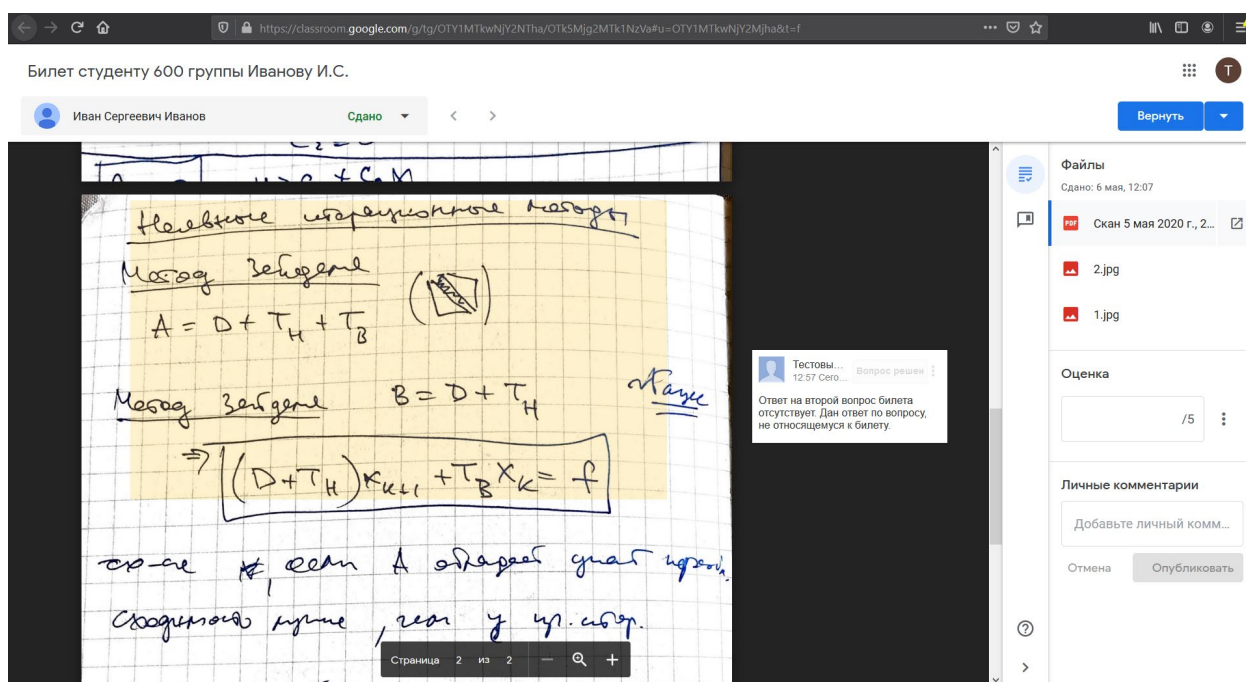 https://classroom.google.com/g/tg/OTY1MTkwNjY2NTha/OTk5Mjg2MTk1NzVa#u=OTY1MTkwNjY2Mjha&t=f
Билет студенту 600 группы Иванову И.С.
T
Иван Сергеевич Иванов
Сдано
Вернуть
Неявные итерационные методы
Метод Зейделя
A = D + T_H + T_B
Метод Зейделя B = D + T_H
⇒ (D + T_H) x_{k+1} + T_B x_k = f
если A обладает диаг
Сходимость лучше, чем у пр. итер.
Страница 2 из 2
Тестовы...
12:57 Сего...
Вопрос решен
Ответ на второй вопрос билета
отсутствует. Дан ответ по вопросу,
не относящемуся к билету.
Файлы
Сдано: 6 мая, 12:07
PDF
Скан 5 мая 2020 г., 2...
2.jpg
1.jpg
Оценка
/5
Личные комментарии
Добавьте личный комм...
Отмена
Опубликовать